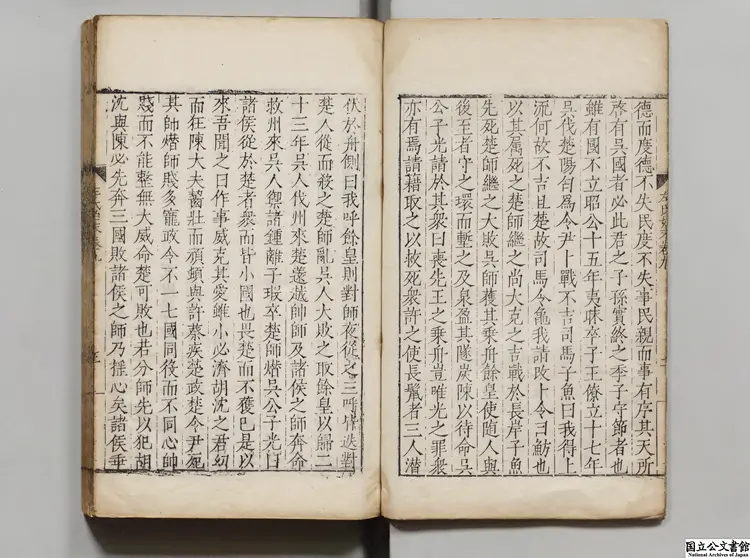 德而度德不失民度不失事民親而事有序其天所
啓有吳國者必此君之子孫實終之季子守節者也
雖有國不立昭公十五年夷昧卒子王僚立十七年
吳伐楚陽匄爲令尹卜戰不吉司馬子魚曰我得上
流何故不吉且楚故司馬令龜我請改卜令曰魴也
以其屬死之楚師繼之尚大克之吉戰於長岸子魚
先死楚師繼之大敗吳師獲其乘舟餘皇使隨人與
後至者守之環而塹之及泉盈其隧炭陳以待命吳
公子光請於其衆曰喪先王之乘舟豈唯光之罪衆
亦有焉請藉取之以救死衆許之使長鬣者三人潛
伏於舟側曰我呼餘皇則對師夜從之三呼皆迭對
楚人從而殺之楚師亂吳人大敗之取餘皇以歸二
十三年吳人伐州來楚薳越帥師及諸侯之師奔命
救州來吳人禦諸鍾離子瑕卒楚師熸吳公子光曰
諸侯從於楚者衆而皆小國也畏楚而不獲已是以
來吾聞之曰作事威克其愛雖小必濟胡沈之君幼
而狂陳大夫齧壯而頑頓與許蔡疾楚政楚令尹死
其師熸帥賤多寵政令不一七國同役而不同心帥
賤而不能整無大威命楚可敗也若分師先以犯胡
沈與陳必先奔三國敗諸侯之師乃搖心矣諸侯乖
国立公文書館
National Archives of Japan